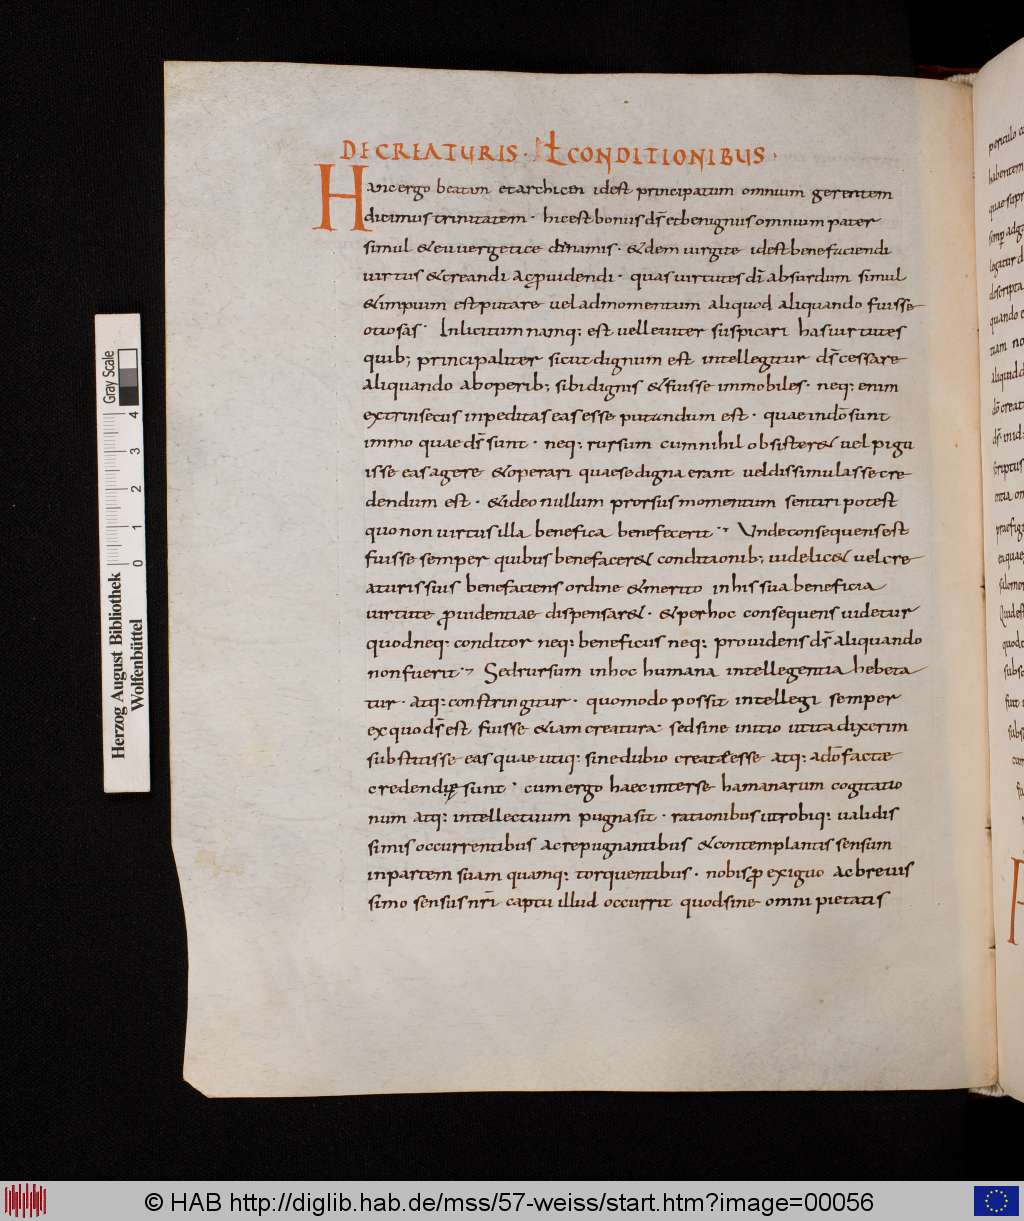 DE CREATURIS · Et CONDITIONIBUS ·
Hanc ergo beatam et archicen idest principatum omnium gerentem
dicimus trinitatem · hic est bonus ds̄ et benignus omnium pater
simul & euvergetice dinamis · & demiurgite idest benefaciendi
uirtus & creandi ac ꝓuidendi · quas uirtutes dī absurdum simul
& impium est putare uel ad momentum aliquod aliquando fuisse
otiosas · Inlicitum namq: est uel leuiter suspicari has uirtutes
quib; principaliter sicut dignum est intellegitur ds̄ cessare
aliquando ab operib; sibi dignis & fuisse immobiles · neq: enim
extrinsecus inpeditas eas esse putandum est · quae in dō sunt
immo quae ds̄ sunt · neq: rursum cum nihil obsister& uel pigu
isse eas agere & operari quae se digna erant uel dissimulasse cre
dendum est · & ideo nullum prorsus momentum sentiri potest
quo non uirtus illa benefica benefecerit · Unde consequens est
fuisse semper quibus benefacer& conditionib; uidelic& uel cre
aturis suis benefaciens ordine & merito in his sua beneficia
uirtute ꝓuidentiae dispensar& · & per hoc consequens uidetur
quod neq: conditor neq: beneficus neq: prouidens ds̄ aliquando
non fuerit · Sed rursum in hoc humana intellegentia hebeta
tur · atq: constringitur · quomodo possit intellegi semper
ex quo ds̄ est fuisse & iam creatura · sed sine initio ut ita dixerim
substitisse eas quae utiq: sine dubio creatæ esse atq: a dō factae
credendæ sunt · cum ergo haec inter se hamanarum cogitatio
num atq: intellectuum pugna sit · rationibus utrobiq: ualidis
simis occurrentibus ac repugnantibus & contemplantis sensum
in partem suam quamq: torquentibus · nobis ꝓ exiguo ac breuis
simo sensus nr̄i captu illud occurrit quod sine omni pietatis
Gray Scale
0 1 2 3 4
Herzog August Bibliothek
Wolfenbüttel
© HAB http://diglib.hab.de/mss/57-weiss/start.htm?image=00056